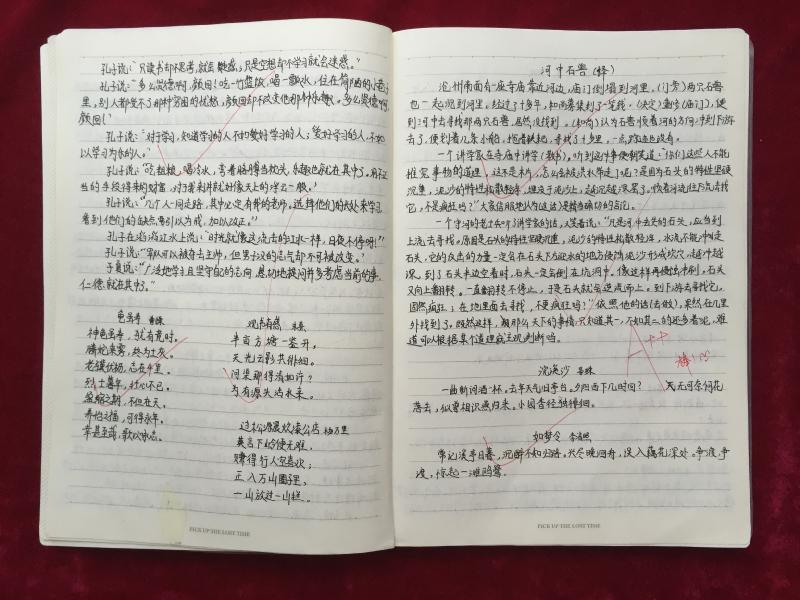 孔子说:“只读书却不思考,就会敷惑,只是空想却不学习就会迷惑。”
孔子说:“多么贤德啊,颜回!吃一竹篮饭,喝一瓢水,住在简陋的小巷子
里,别人都受不了那种穷困的忧愁,颜回却不改变他那种乐趣。多么贤德啊,
颜回!”
孔子说:“对于学习,知道学习的人不如爱好学习的人;爱好学习的人,不如
以学习为乐的人。”
孔子说:“吃粗粮,喝冷水,弯着胳膊当枕头,乐趣也就在其中了。用不正
当的手段得来的财富,对于我来讲就好像天上的浮云一般。”
孔子说:“几个人一同走路,其中必定有我的老师。选择他们的长处来学习,
看到他们的缺点要引以为戒,加以改正。”
孔子在滔滔江水上说:“时光就像这流去的江水一样,日夜不停啊!”
孔子说:“军队可以被夺去主帅,但男子汉的志气却不可被改变。”
子夏说:“广泛地学习且坚守自己的志向,恳切地提问并多考虑当前的事,
仁德就在其中了。”
龟虽寿 曹操
神龟虽寿,犹有竟时。
腾蛇乘雾,终为土灰。
老骥伏枥,志在千里。
烈士暮年,壮心不已。
盈缩之期,不但在天;
养怡之福,可得永年。
幸甚至哉,歌以咏志。
观书有感 朱熹
半亩方塘一鉴开,
天光云影共徘徊。
问渠那得清如许?
为有源头活水来。
过松源晨炊漆公店 杨万里
莫言下岭便无难,
赚得行人空喜欢;
正入万山圈子里,
一山放过一山拦。
PICK UP THE LOST TIME
河中石兽(译)
沧州南面有一座寺庙靠近河边,庙门倒塌到河里。(门旁)两只石兽
也一起沉到河里。经过了十多年,和尚募集到了一笔钱,(决定)重修(庙门),便
到河中去寻找那两只石兽,居然没找到。(和尚)认为石兽顺着河的方向冲到下游
去了,便划着几条小船,拖着铁耙,寻找了十多里,一点踪迹也没有。
一个讲学家在寺庙中讲学(教书),听到这件事便嘲笑道:“你们这些人不能
推究事物的道理。这不是木片,怎么会被洪水带走了呢?是因为石头的特性坚硬
沉重,泥沙的特性松散轻浮,埋没于泥沙上,越沉越深罢了。顺着河流往下流去找
它,不是疯狂吗?”大家信服地认为(这话)是精当确切的言论。
一个守河的老兵听了讲学家的话,大笑着说:“凡是河中丢失的石头,应当到
上流去寻找。原因是石头的特性坚硬沉重,泥沙的特性松散轻浮,水流不能冲走
石头,它的反击的力量一定会在石头下方迎水的地方侵蚀泥沙形成坎穴,越冲越
深,到了石头半边空着时,石头一定会倒在坑洞中。像这样再侵蚀冲刷,石头
又向上翻转。一直翻转不停止,于是石头就会逆流而上。到下游去寻找它,
固然疯狂;在地里面去寻找,不更疯狂吗?”依照他的话(去做),果然在几里
外找到了。既然这样,那么天下的事情,只知道其一,不如其二的还多着呢,难
道可以根据某个道理就主观判断吗。
A++
棒!
浣溪沙 晏殊
一曲新词酒一杯。去年天气旧亭台。夕阳西下几时回? 无可奈何花
落去,似曾相识燕归来。小园香径独徘徊。
如梦令 李清照
常记溪亭日暮,沉醉不知归路。兴尽晚回舟,误入藕花深处。争渡,争
渡,惊起一滩鸥鹭。
PICK UP THE LOST TIME